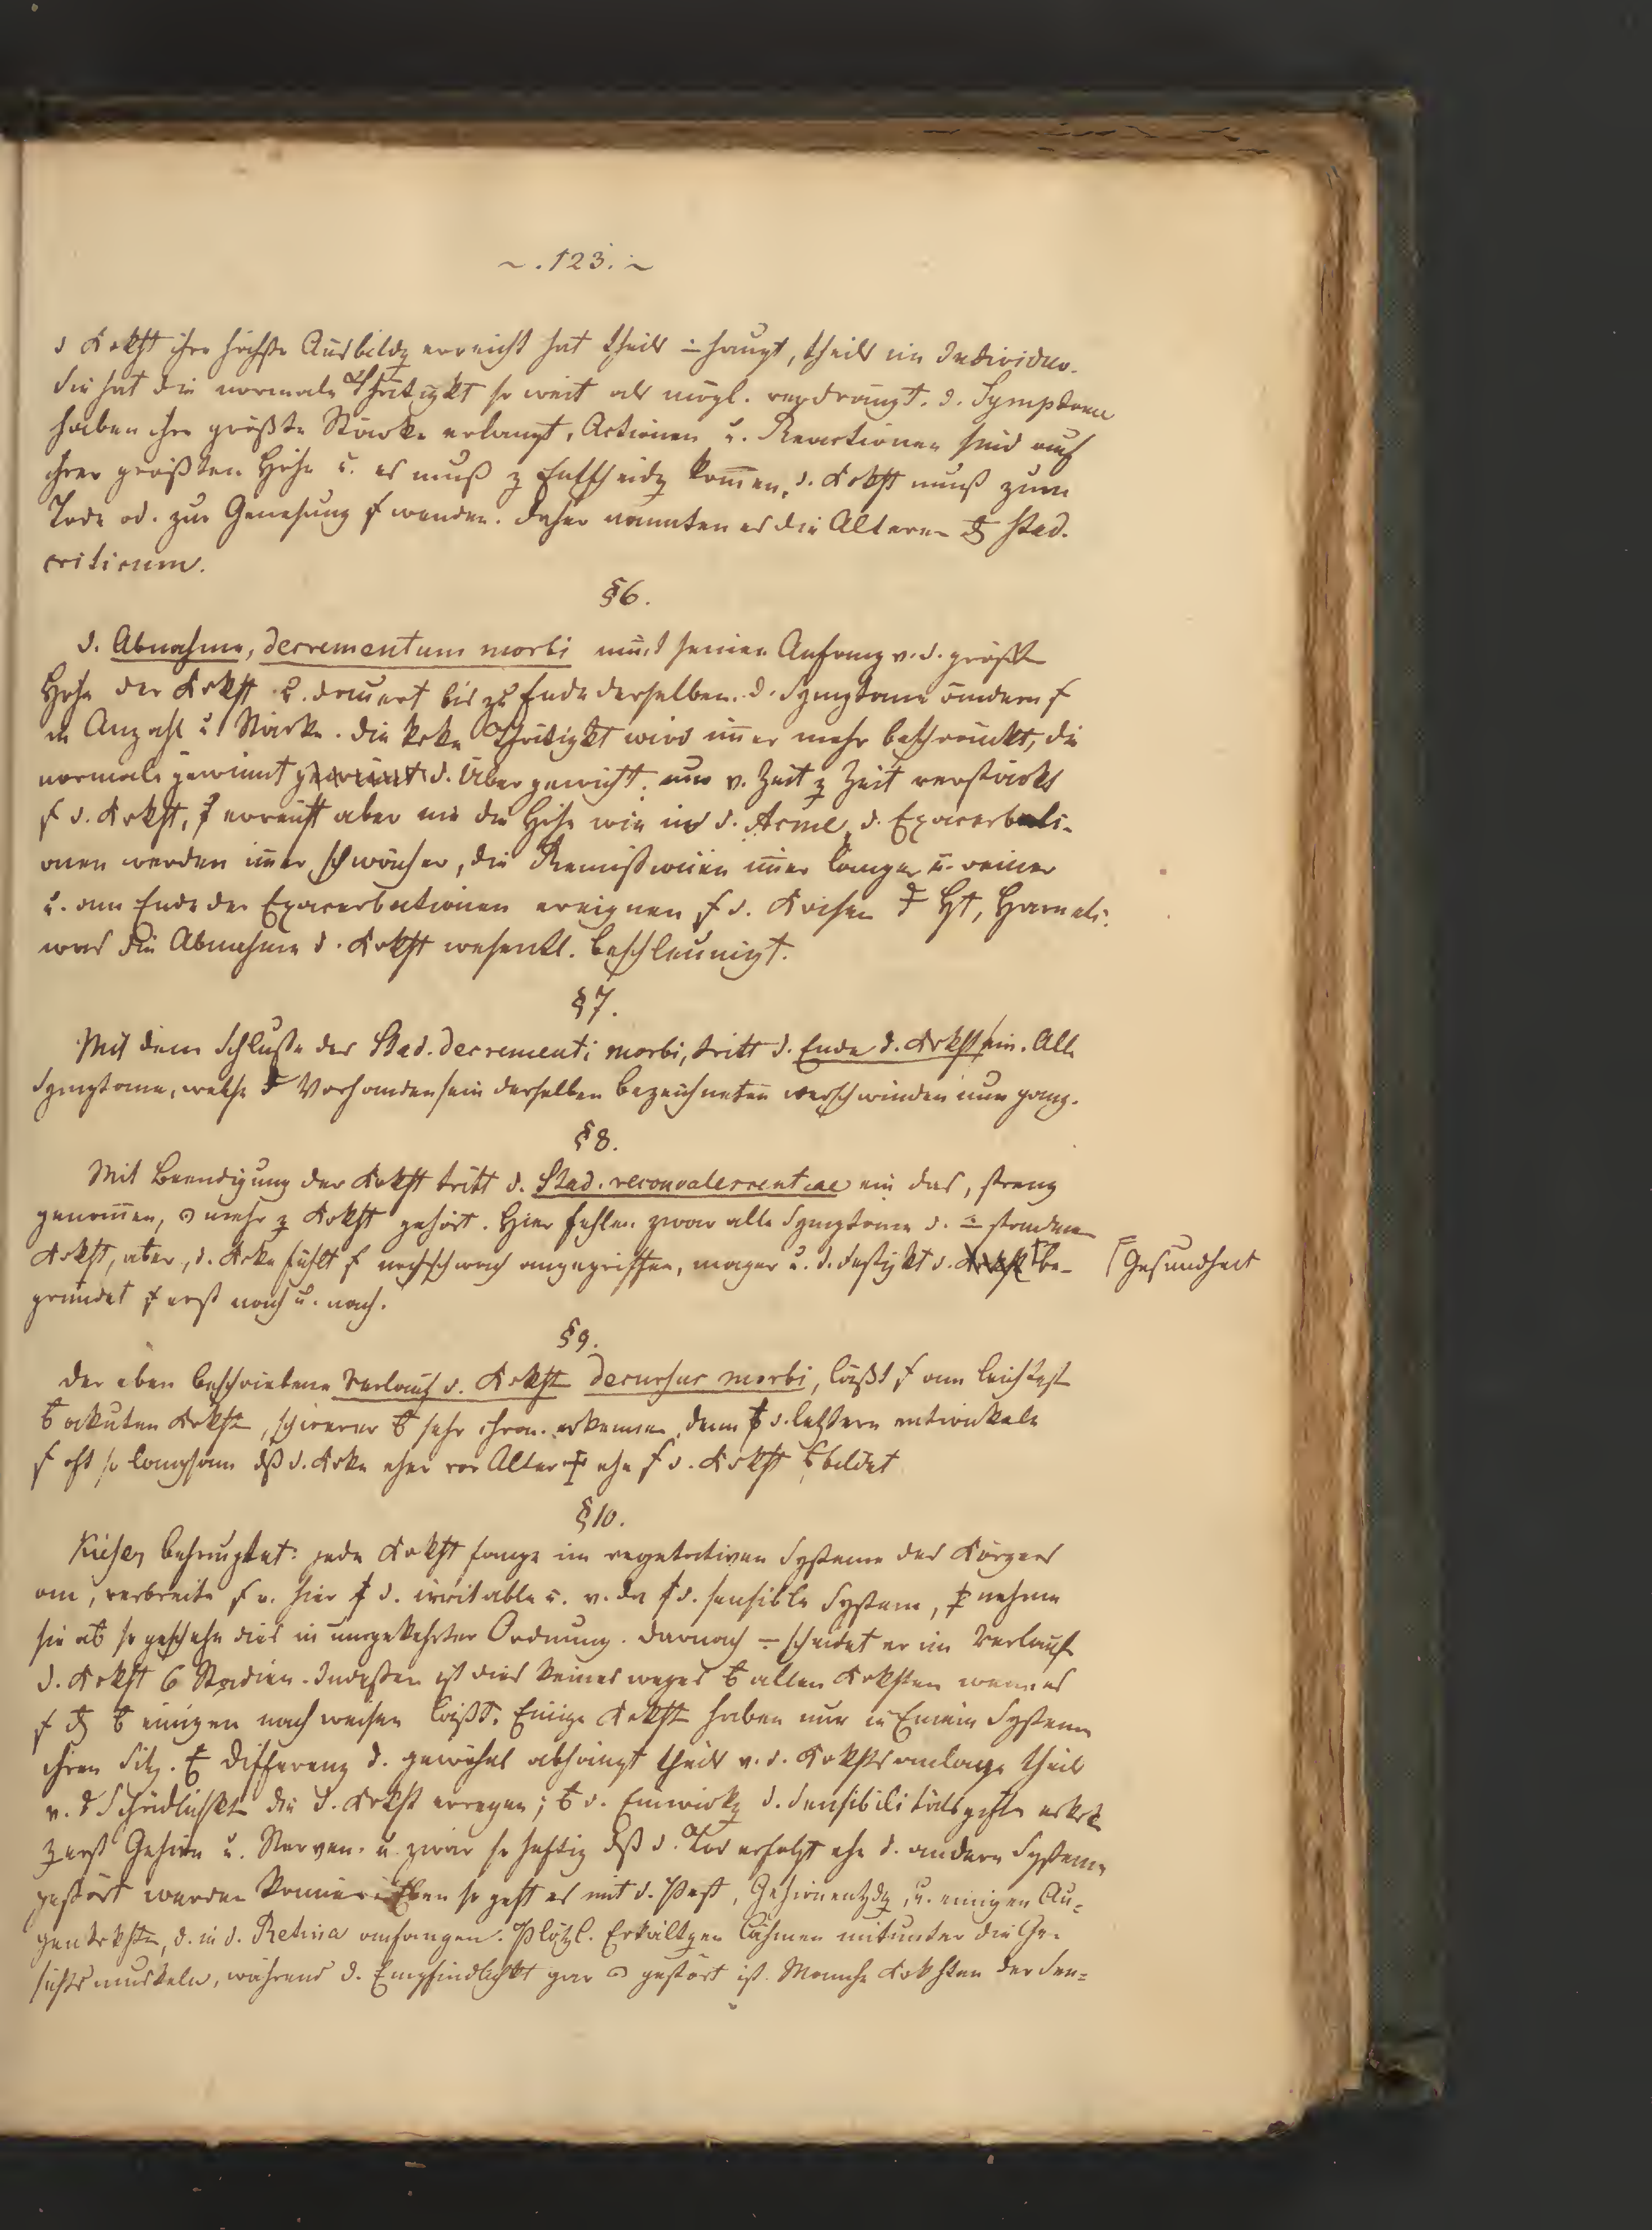 ~ . 123. ~
d Krkht ihre höchste Ausbildg erreicht hat theils haupt, theils im Individuo.
Sie hat die normale Thätigkt so weit als mögl. verdrängt. d. Symptome
haben ihre größte Stärke erlangt, Actionen u. Reactionen sind auf
ihrer größten Höhe u. es muß z Entscheidg kom̅en, d. Krkht muß zum
Tode od. zur Genesung f wenden. Daher nannten es die Alteren Stad.
criticum.
§6.
d. Abnahme, decrementum morbi nimt seinen Anfang v. d. größten
Höhe der Krkht u. dauert bis zu Ende derselben. d. Symptome ändern f
in Anzahl u Stärke. die krke Thätigkt wird im̅er mehr beschränkt, die
normale gewinnt d. Übergewicht. nur v. Zeit z Zeit verstärkt
f d. Krkht, erreicht aber nie die Höhe wie in d. Acme, d. Exacerbati-
onen werden im̅er schwächer, die Remissionen im̅er länger u. reiner
u. am Ende der Exacerbationen ereignen f d. Krisen Ht, Harn etc:
was die Abnahme d. Krkht wesentl. beschleunigt.
§7.
Mit dem Schluße des Stad. decrementi morbi, tritt d. Ende d. Krkht ein. Alle
Symptome, welche Vorhandensein derselben bezeichneten verschwinden nun ganz.
§8.
Mit Beendigung der Krkht tritt d. Stad. reconvalescentiae ein das, streng
genom̅en, mehr z Krkht gehört. Hier fehlen zwar alle Symptome d. standenen
Krkht, aber, d. Krke fühlt f noch schwach angegriffen, mager u. d. Festigkt d. be-
Gesundheit
gründet f erst nach u. nach.
§9.
Der eben beschriebene Verlauf d. Krkht decursus morbi, läßt f am leichtest
akuten Krkhtn, schwerer sehr chron. erkennen, denn d. letztern entwickeln
f oft so langsam dß d. Krke eher vor Alter ehe f d. Krkht bildet
§10.
Kieser behauptet: jede Krkht fange im vegetativen Systeme des Körpers
an, verbreite f v. hier d. irritable u. v. da d. sensible System, nehme
sie ab so geschehe dies in umgekehrter Ordnung. Darnach scheidet er im Verlauf
d. Krkht 6 Stadien. Indeßen ist dies keinesweges allen Krkhten wenn es
f einigen nachweisen läßt. Einige Krkhtn haben nur in Einem Systeme
ihren Sitz. Differenz d. gewöhnl abhängt theils v. d. Krkhtsanlage theils
v. d Schädlichktn die d. Krkht erregen; d. Einwirkg d. Sensibilitätsgifte erkrkt
zuerst Gehirn u. Nerven. u. zwar so heftig dß d. Tod erfolgt ehe d. andern Systeme
gestört werden können. Eben so geht es mit d. Pest, Gehirnentzdg, u. einigen Au-
genkrkhtn, d. in d. Retina anfangen. Plötzl. Erkältgen lähmen mitunter die Ge-
sichtsmuskeln, während d. Empfindlichkt gar gestört ist. Manche Krkhten der Sen-